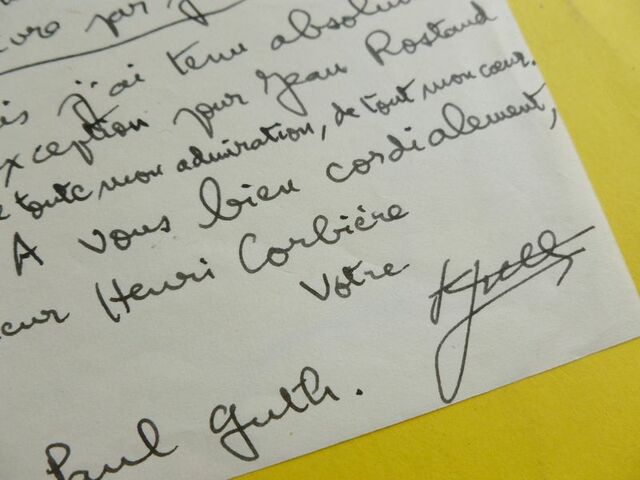 par
is j'ai tenu absolum
xception pour Jean Rostand
e toute mon admiration, de tout mon cœur.
A vous bien cordialement,
ieur Henri Corbière
Votre
Paul Guth.